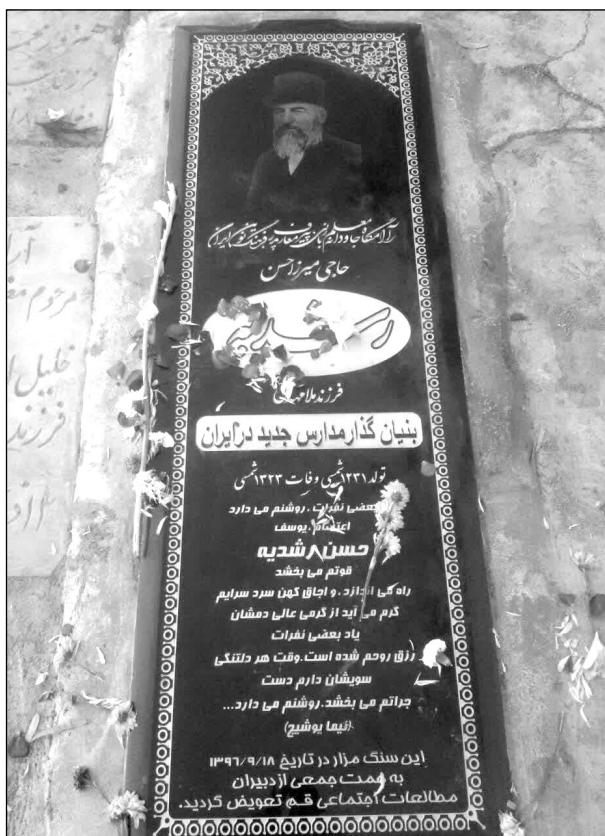 آرامگاه جاودانه معلم بانی پیر معارف و فرهنگ نوین ایران
حاجی میرزا حسن
رشدیه
فرزند ملا مهدی
بنیان گذار مدارس جدید در ایران
تولد ۱۲۳۱ شمسی وفات ۱۳۲۳ شمسی
بعضی نفرات ، روشنم می دارد
اعتصام ، یوسف
حسن رشدیه
قوتم می بخشد
راه می اندازد ، و اجاق کهن سرد سرایم
گرم می آید از گرمی عالی دمشان
یاد بعضی نفرات
رزق روحم شده است . وقت هر دلتنگی
سویشان دارم دست
جراتم می بخشد . روشنم می دارد ...
(نیما یوشیج)
این سنگ مزار در تاریخ ۱۳۹۶/۹/۱۸
به همت جمعی از دبیران
مطالعات اجتماعی قم تعویض گردید.
مرحوم
خلیل
فرزند